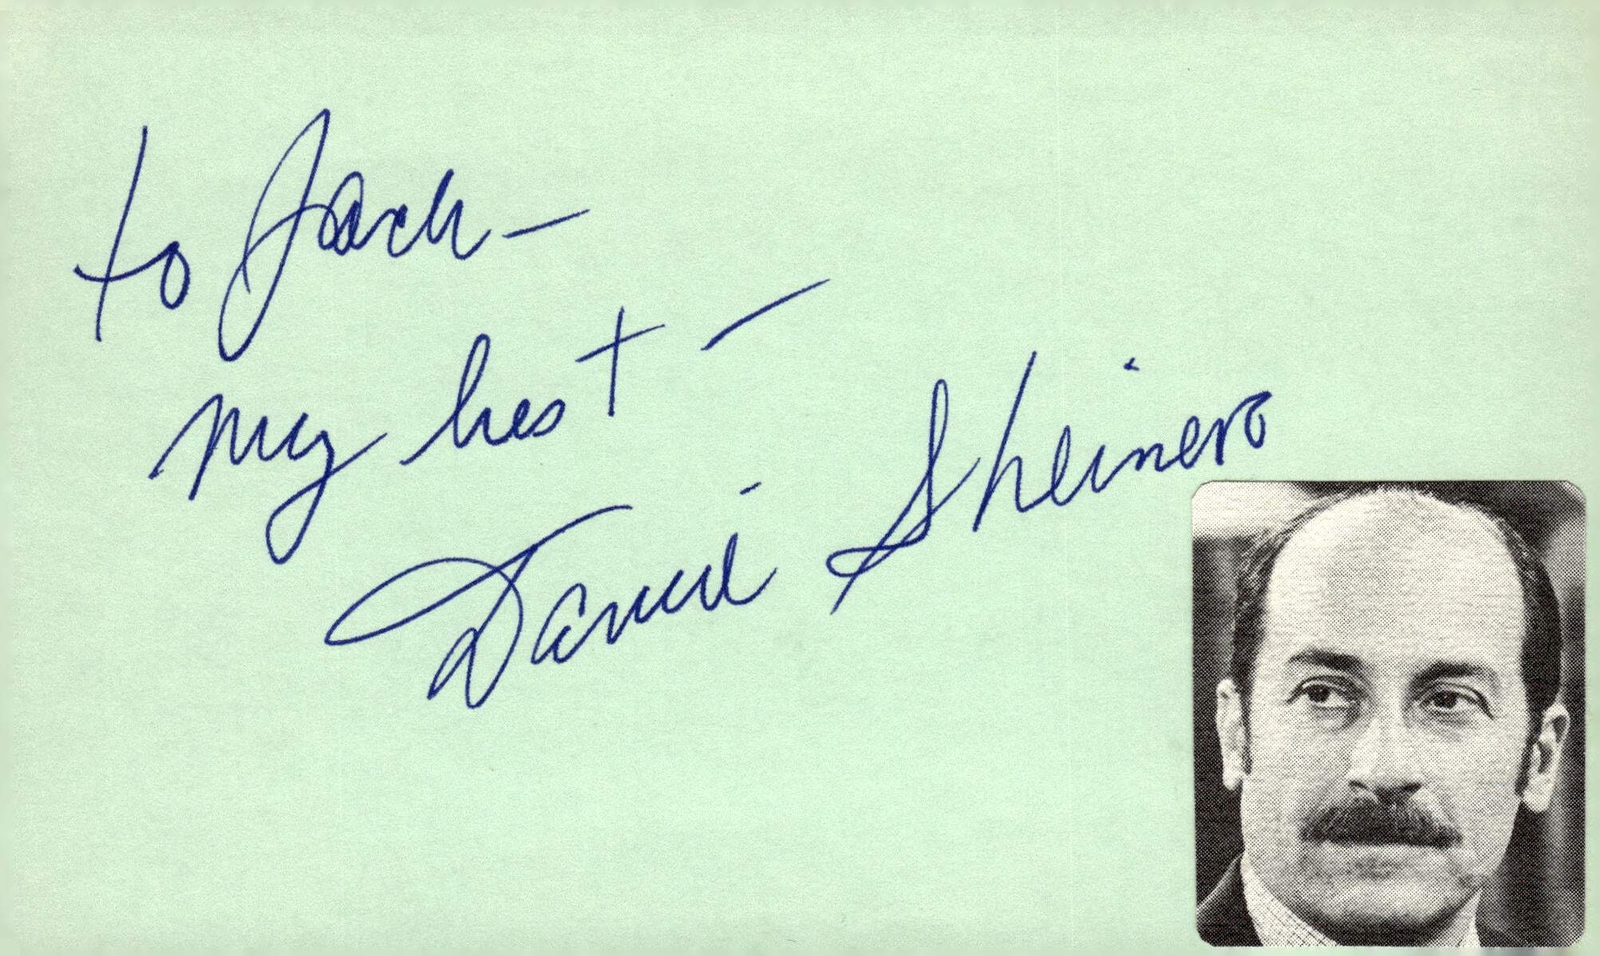 to Jack -
my best -
David Sheiner